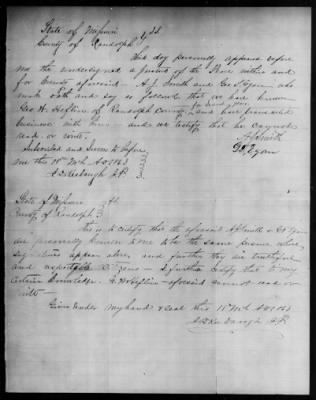 State of Missouri } SS
County of Randolph
This day personally appeared before
me the undersigned a Justice of the Peace within and
for County aforesaid - A. J. Smith and Geo T. Lyon who
make oath and say as follows that we have known
Geo W. Heflin of Randolph County for several years and have transacted
business with him and we certify that he cannot
read or write.
A J Smith
Subscribed and Sworn to before
me this 18th Mch A D 1863
State of Missouri
County of Randolph } SS
this is to certify that the aforesaid A J Smith & Geo T Lyon
are personally known to me to be the same persons whose
signatures appear above and further they are truthful
and respectable citizens - I further certify that to my
certain knowledge G W Heflin - aforesaid cannot read or
write -
Given under my hand & seal this 18th Mch A D 1863